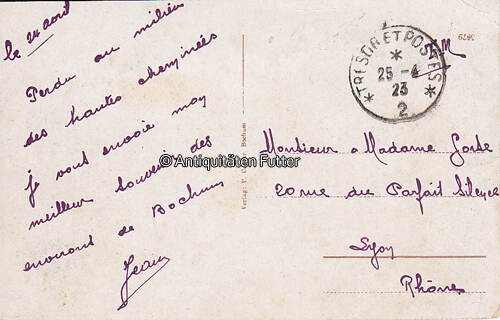 le 24 avril
Perdu au milieu
des hautes cheminées
je vous envoie mon
meilleur souvenir des
environs de Bochum
Jean
©Antiquitäten Futter
Bochum
TRESOR ET POSTES
25-4
23
2
FM
5879
Monsieur & Madame
20 rue du Parfait Silence
Lyon
Rhône